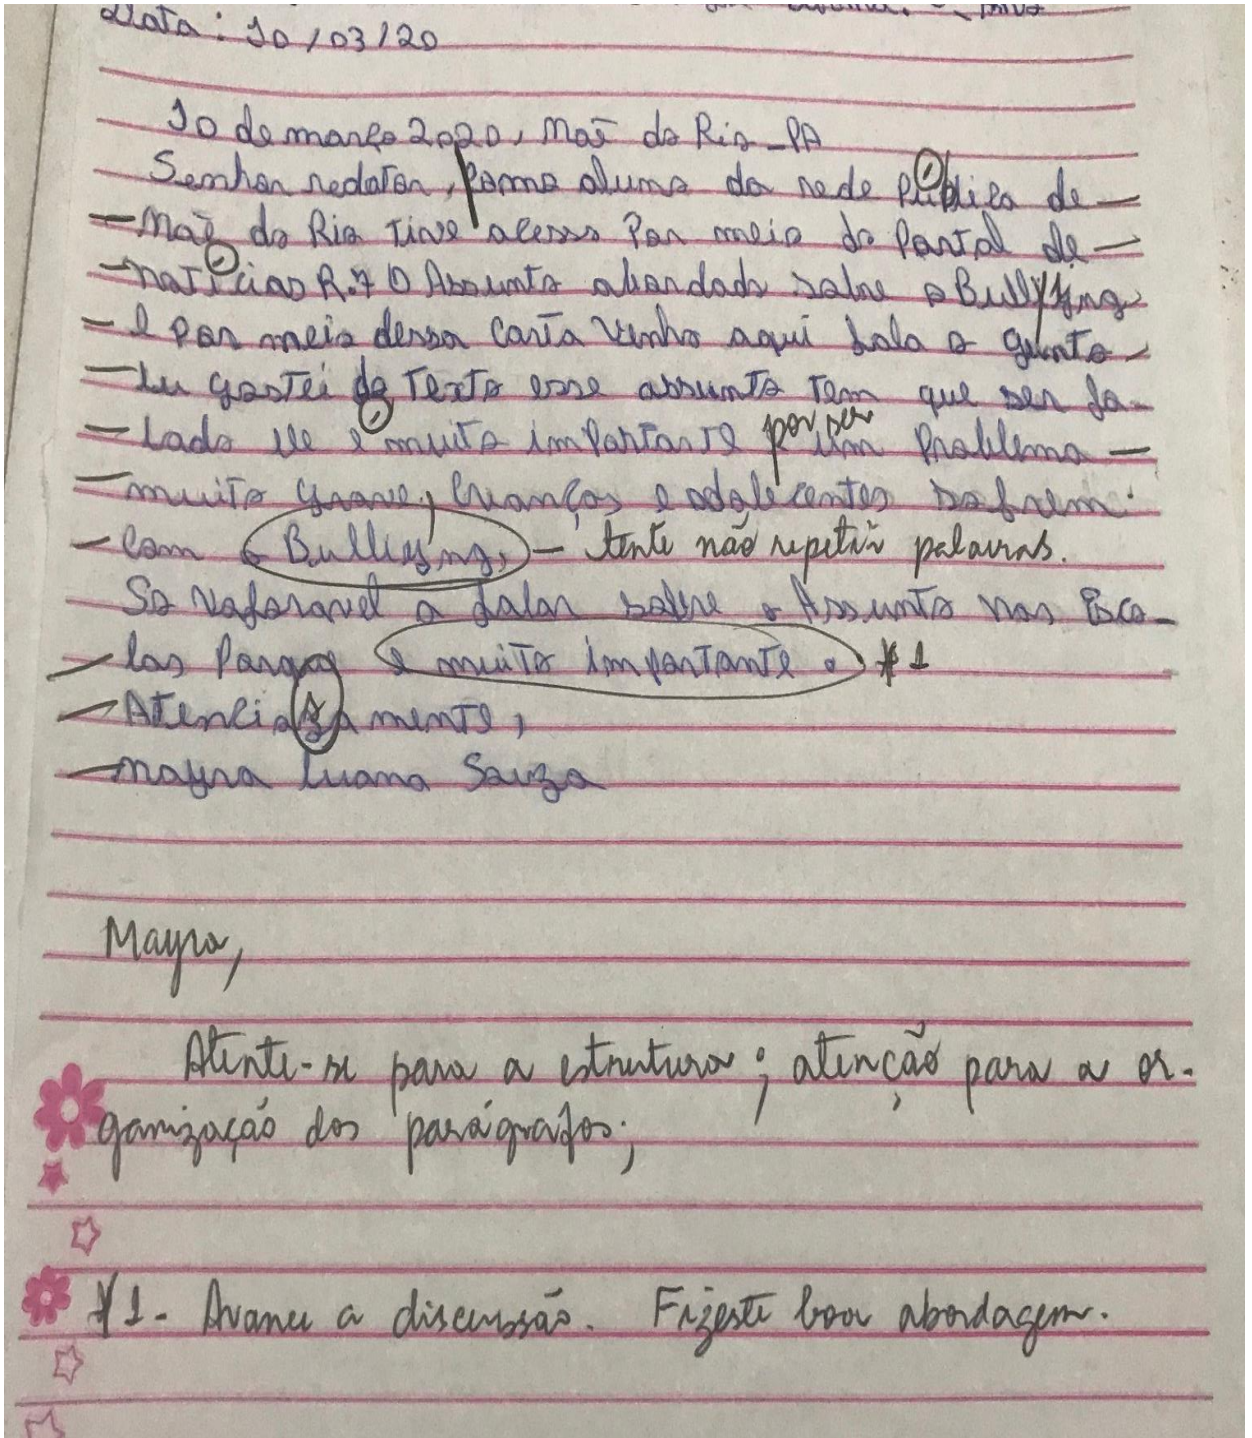 Data: 10/03/20
10 de março 2020, Mãe do Rio-PA
Senhor redator, como aluna da rede Pública de
Mãe do Rio Tive acesso Por meio do Portal de
notícias R.7 O Assunto abordado sobre o Bullyng
E por meio dessa carta venho aqui fala o quanto
Eu gostei do Texto esse assunto tem que ser fa-
lado Ele é muito importante por ser um Problema
muito grave, Crianças e adolecentes sofrem
com o Bullyng, - tente não repetir palavras.
So vaforavel a falar sobre o Assunto nas Esco-
las Porque e muito importante. *1
Atenciosamente,
mayra Luana Souza
Mayra,
Atente-se para a estrutura; atenção para a or-
ganização dos parágrafos;
*1- Avance a discussão. Fizeste boa abordagem.